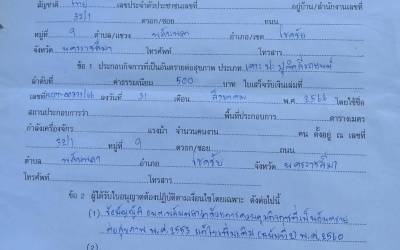 สัญชาติ ไทย เลขประจำตัวประชาชนเลขที่ อยู่บ้าน/สำนักงานเลขที่
32/1 ตรอก/ซอย ถนน
หมู่ที่ 9 ตำบล/แขวง พลับพลา อำเภอ/เขต โชคชัย
จังหวัด นครราชสีมา โทรศัพท์ โทรสาร
ข้อ 1 ประกอบกิจการที่เป็นอันตรายต่อสุขภาพ ประเภท เคาะ ปะ
ลำดับที่ ค่าธรรมเนียม 500 บาท ใบเสร็จรับเงินเล่มที่
เลขที่ ลงวันที่ 31 เดือน สิงหาคม พ.ศ. 2566 โดยใช้ชื่อ
สถานประกอบการว่า พื้นที่ประกอบการ ตารางเมตร
กำลังเครื่องจักร แรงม้า จำนวนคนงาน คน ตั้งอยู่ ณ เลขที่
32/1 หมู่ที่ 9 ตรอก/ซอย ถนน
ตำบล พลับพลา อำเภอ โชคชัย จังหวัด นครราชสีมา
โทรศัพท์ โทรสาร
ข้อ 2 ผู้ได้รับใบอนุญาตต้องปฏิบัติตามเงื่อนไขโดยเฉพาะ ดังต่อไปนี้
(1) ข้อบัญญัติ องค์การบริหารส่วนตำบล การควบคุมกิจการที่เป็นอันตราย
ต่อสุขภาพ พ.ศ. 2553 แก้ไขเพิ่มเติม (ฉบับที่ 2) พ.ศ. 2560
(2)